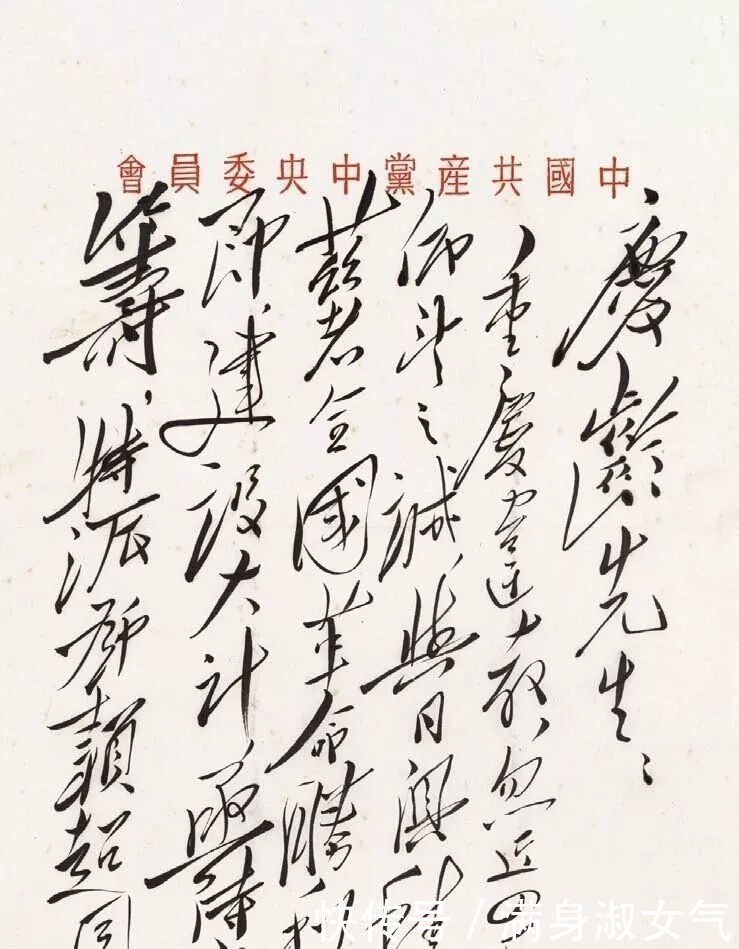 中國共産黨中央委員會
慶齡先生：
重慶違教，忽近四
仰望之誠，與日俱積
兹者全國革命勝利
即，建設大計，亟待
籌，特派鄧穎超同
快传号 / 满身淑女气